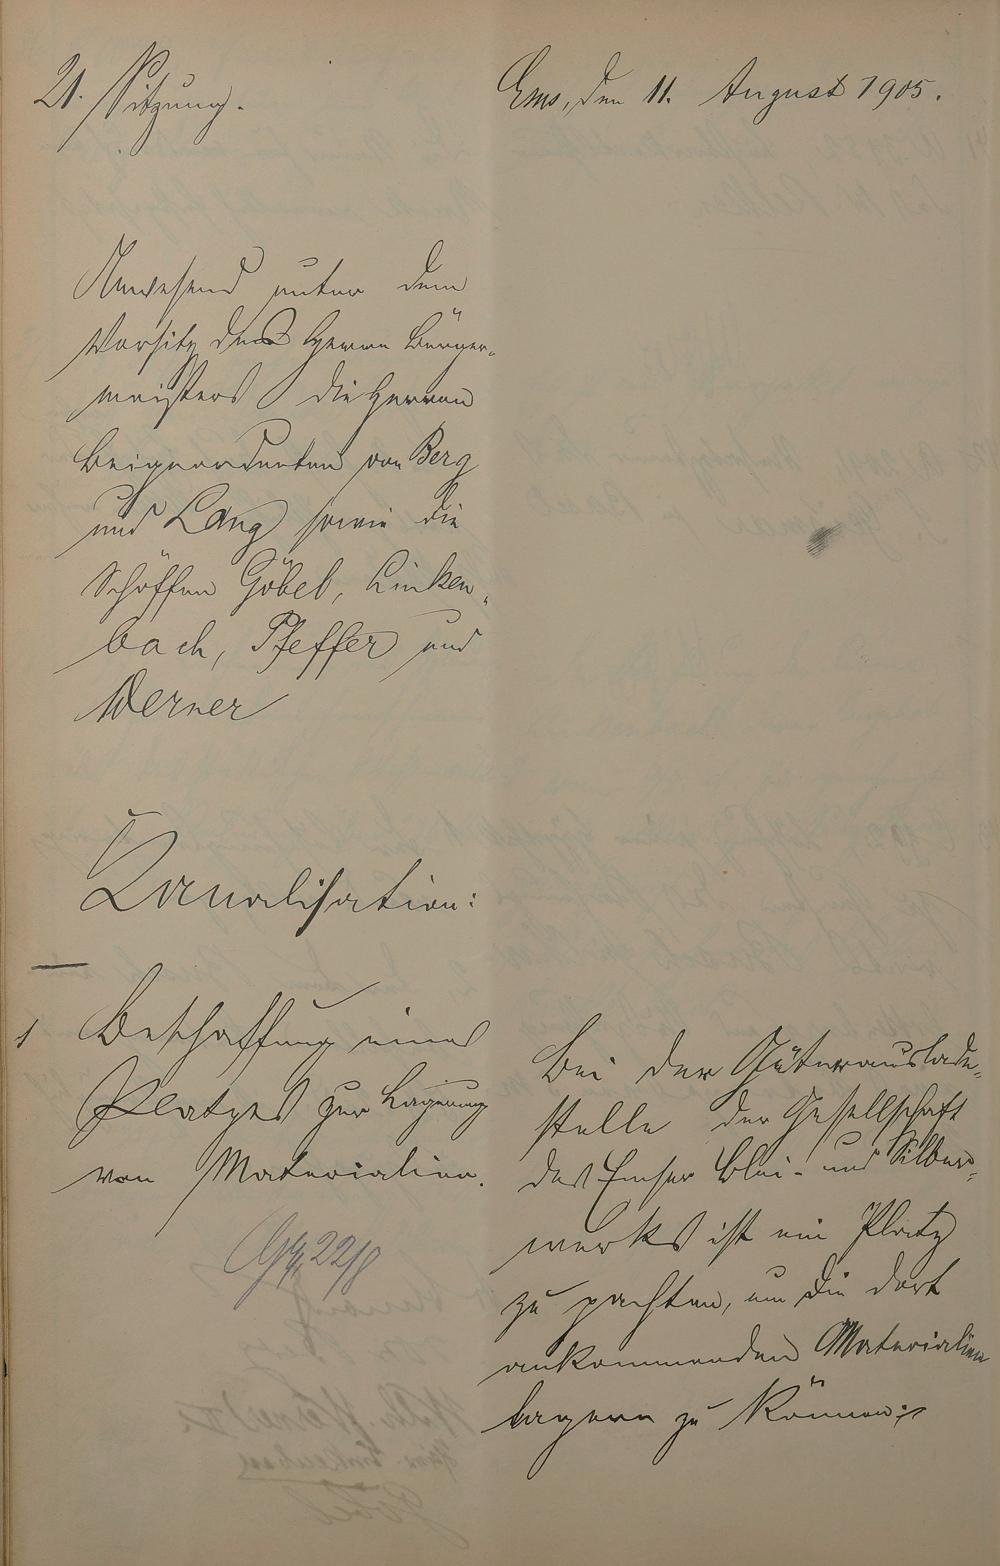 21. Sitzung.
Ems, den 11. August 1905.
Anwesend unter dem
Vorsitz des Herrn Bürger-
meisters die Herren
Beigeordneten von Berg
und Lang sowie die
Schöffen Göbel, Linken-
bach, Pfeffer und
Werner
Kanalisation:
1 Beschaffung eines
Platzes zur Lagerung
von Materialien.
22/8
Bei der Güterauslade-
stelle der Gesellschaft
des Emser Blei- und Silber-
werks ist ein Platz
zu pachten, um die dort
ankommenden Materialien
lagern zu können.